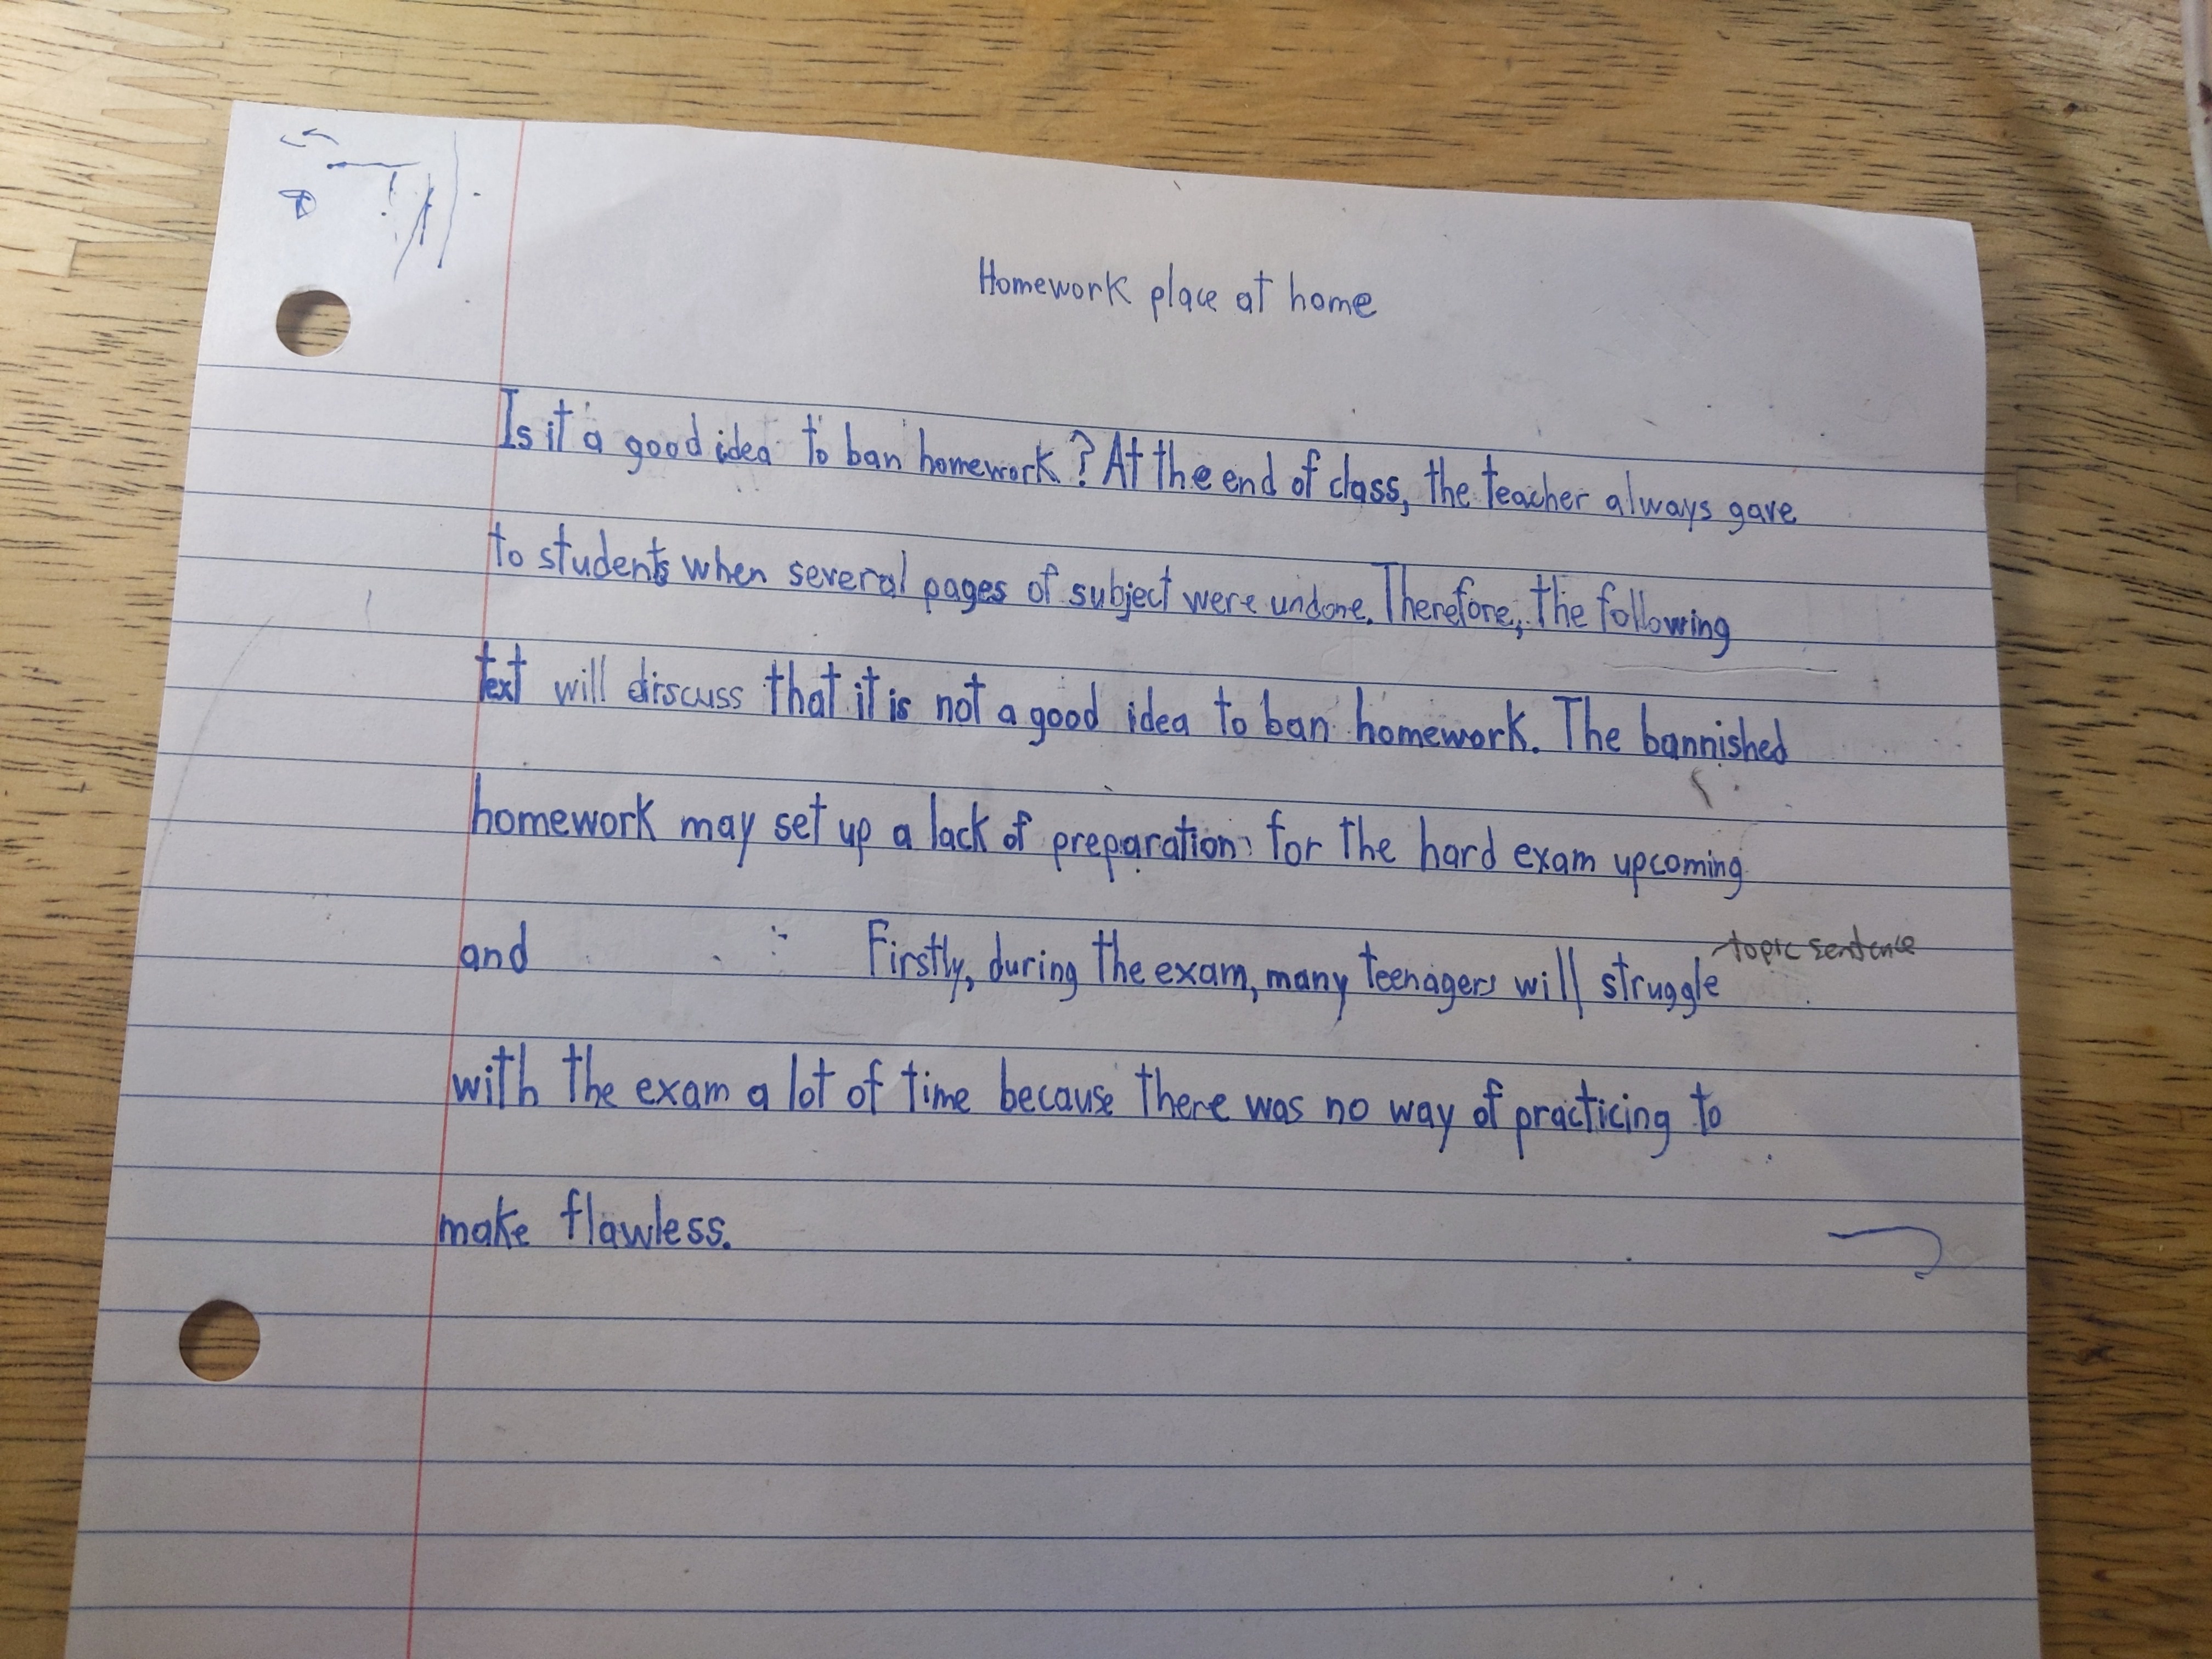 Homework place at home
Is it a good idea to ban homework? At the end of class, the teacher always gave
to students when several pages of subject were undone. Therefore, the following
text will discuss that it is not a good idea to ban homework. The bannished
homework may set up a lack of preparation for the hard exam upcoming
and Firstly, during the exam, many teenagers will struggle
topic sentence
with the exam a lot of time because there was no way of practicing to
make flawless.